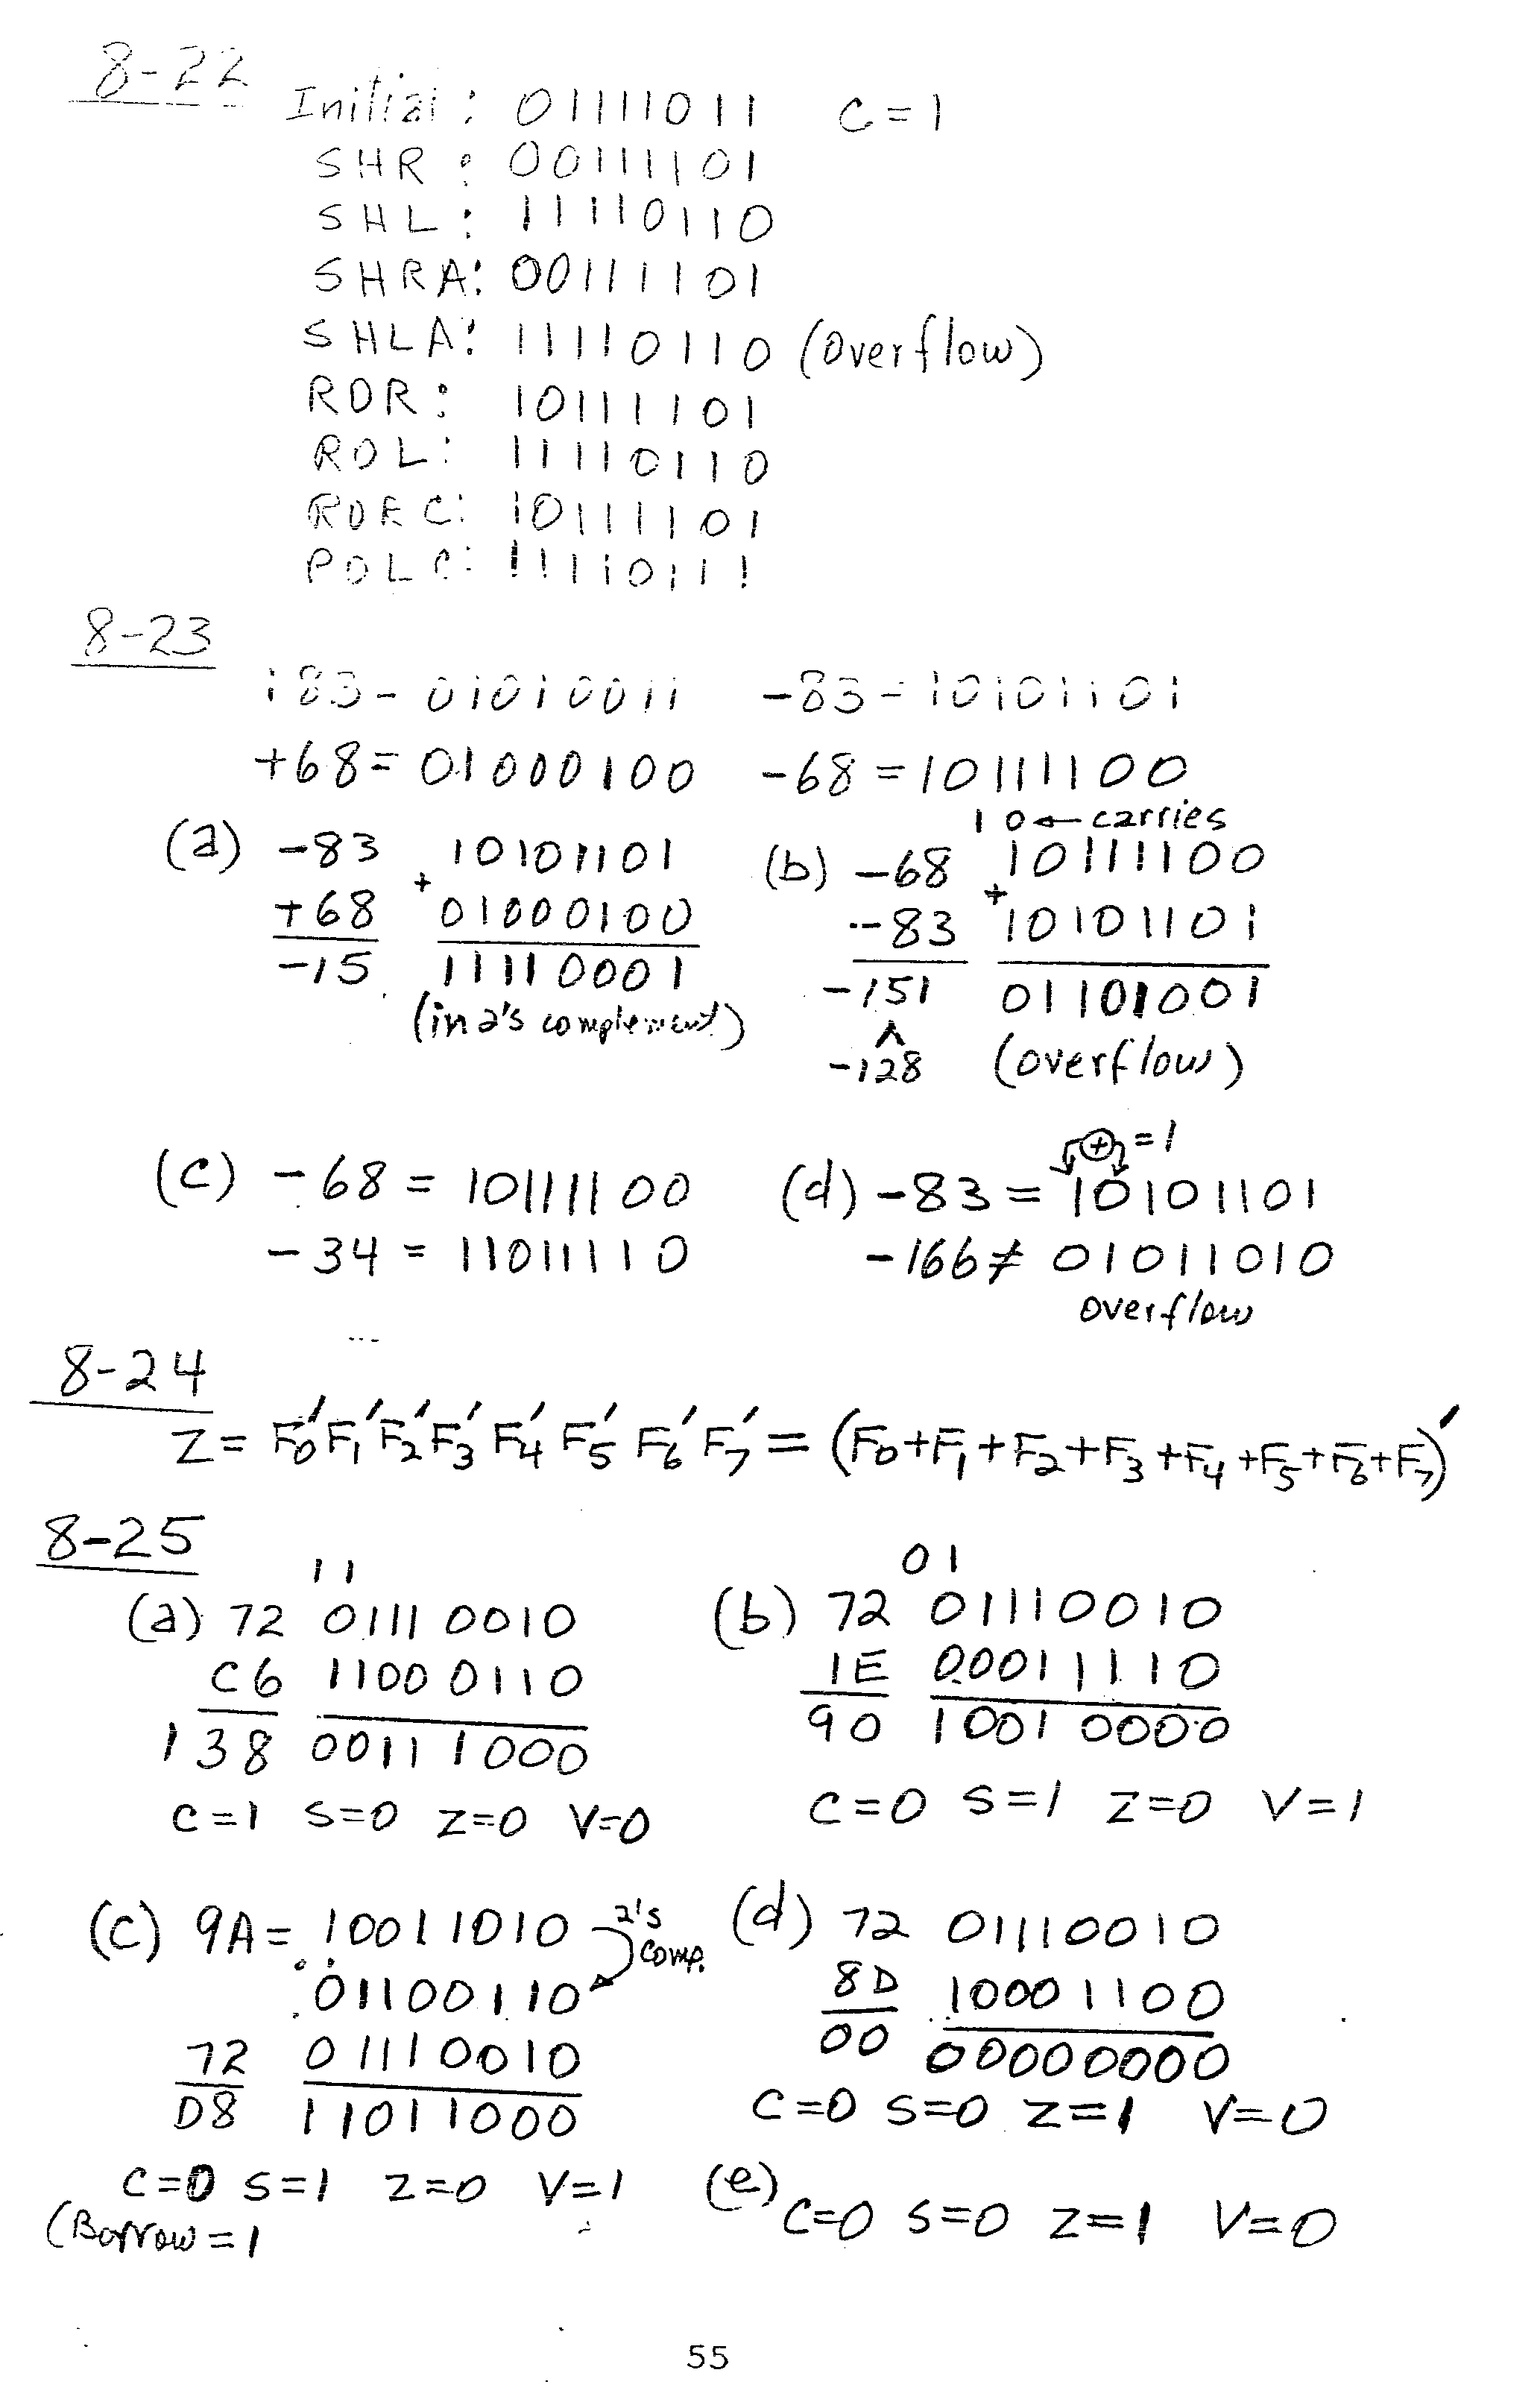 8-22
Initial: 01111011 C=1
SHR: 00111101
SHL: 11110110
SHRA: 00111101
SHLA: 11110110 (Overflow)
ROR: 10111101
ROL: 11110110
RORC: 10111101
ROLC: 11110111
8-23
+83 = 01010011 -83 = 10101101
+68 = 01000100 -68 = 10111100
(a) -83 10101101
+68 + 01000100
-15 11110001
(in 2's complement)
1 0 ← carries
(b) -68 10111100
-83 + 10101101
-151 01101001
^
-128 (overflow)
(c) -68 = 10111100
-34 = 11011110
⊕ = 1
(d) -83 = 10101101
-166 ≠ 01011010
overflow
8-24
Z = F0'F1'F2'F3'F4'F5'F6'F7' = (F0+F1+F2+F3+F4+F5+F6+F7)'
8-25
1 1
(a) 72 0111 0010
C6 1100 0110
138 0011 1000
C=1 S=0 Z=0 V=0
0 1
(b) 72 01110010
1E 00011110
90 1001 0000
C=0 S=1 Z=0 V=1
(c) 9A = 10011010 2's comp.
01100110
72 01110010
D8 11011000
C=0 S=1 Z=0 V=1
(Borrow = 1
(d) 72 01110010
8D 10001100
00 00000000
C=0 S=0 Z=1 V=0
(e) C=0 S=0 Z=1 V=0
55